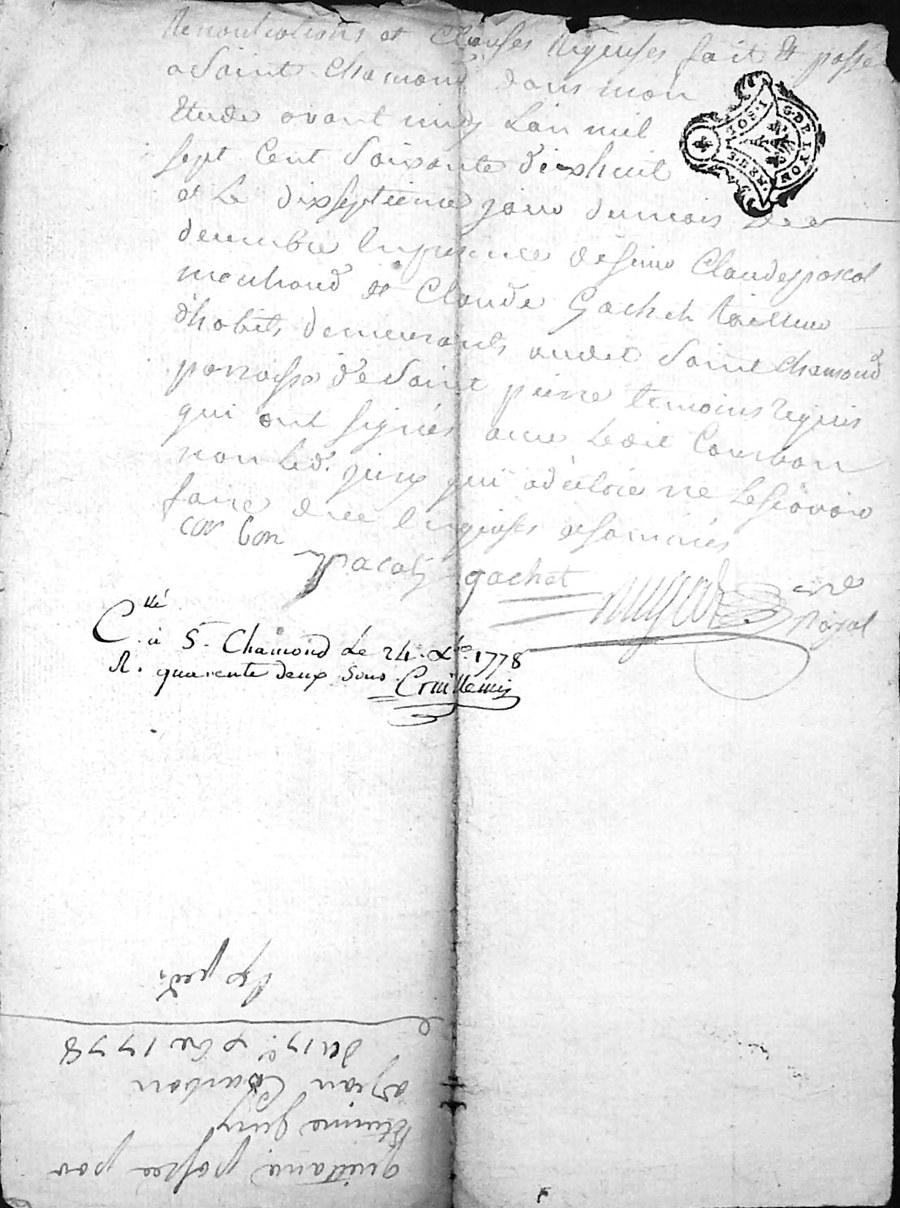 Renontiations et Clauses Requises fait & passé
a Saint Chamond dans mon
Etude avant midy Lan mil
sept Cent Soixante dixhuit
et Le dixseptieme jour dumois de
decembre En presence de sieur Claude pascal
marchand & Claude Gachet tailleur
d'habits demeurants audit Saint Chamond
paroisse de Saint pierre temoins Requis
qui ont signés avec Ledit Courbon
non Led. jury qui a déclaré ne le sçavoir
faire de ce Enquis & sommés
cor bon
Pacal gachet
Royal
G DE LYON
C.llé
à St. Chamond Le 24. Xbre. 1778
R. quarente deux sous.
quittance passée par
Etienne jury
a Jean Courbon
du 17e. Xbre 1778
Exped.